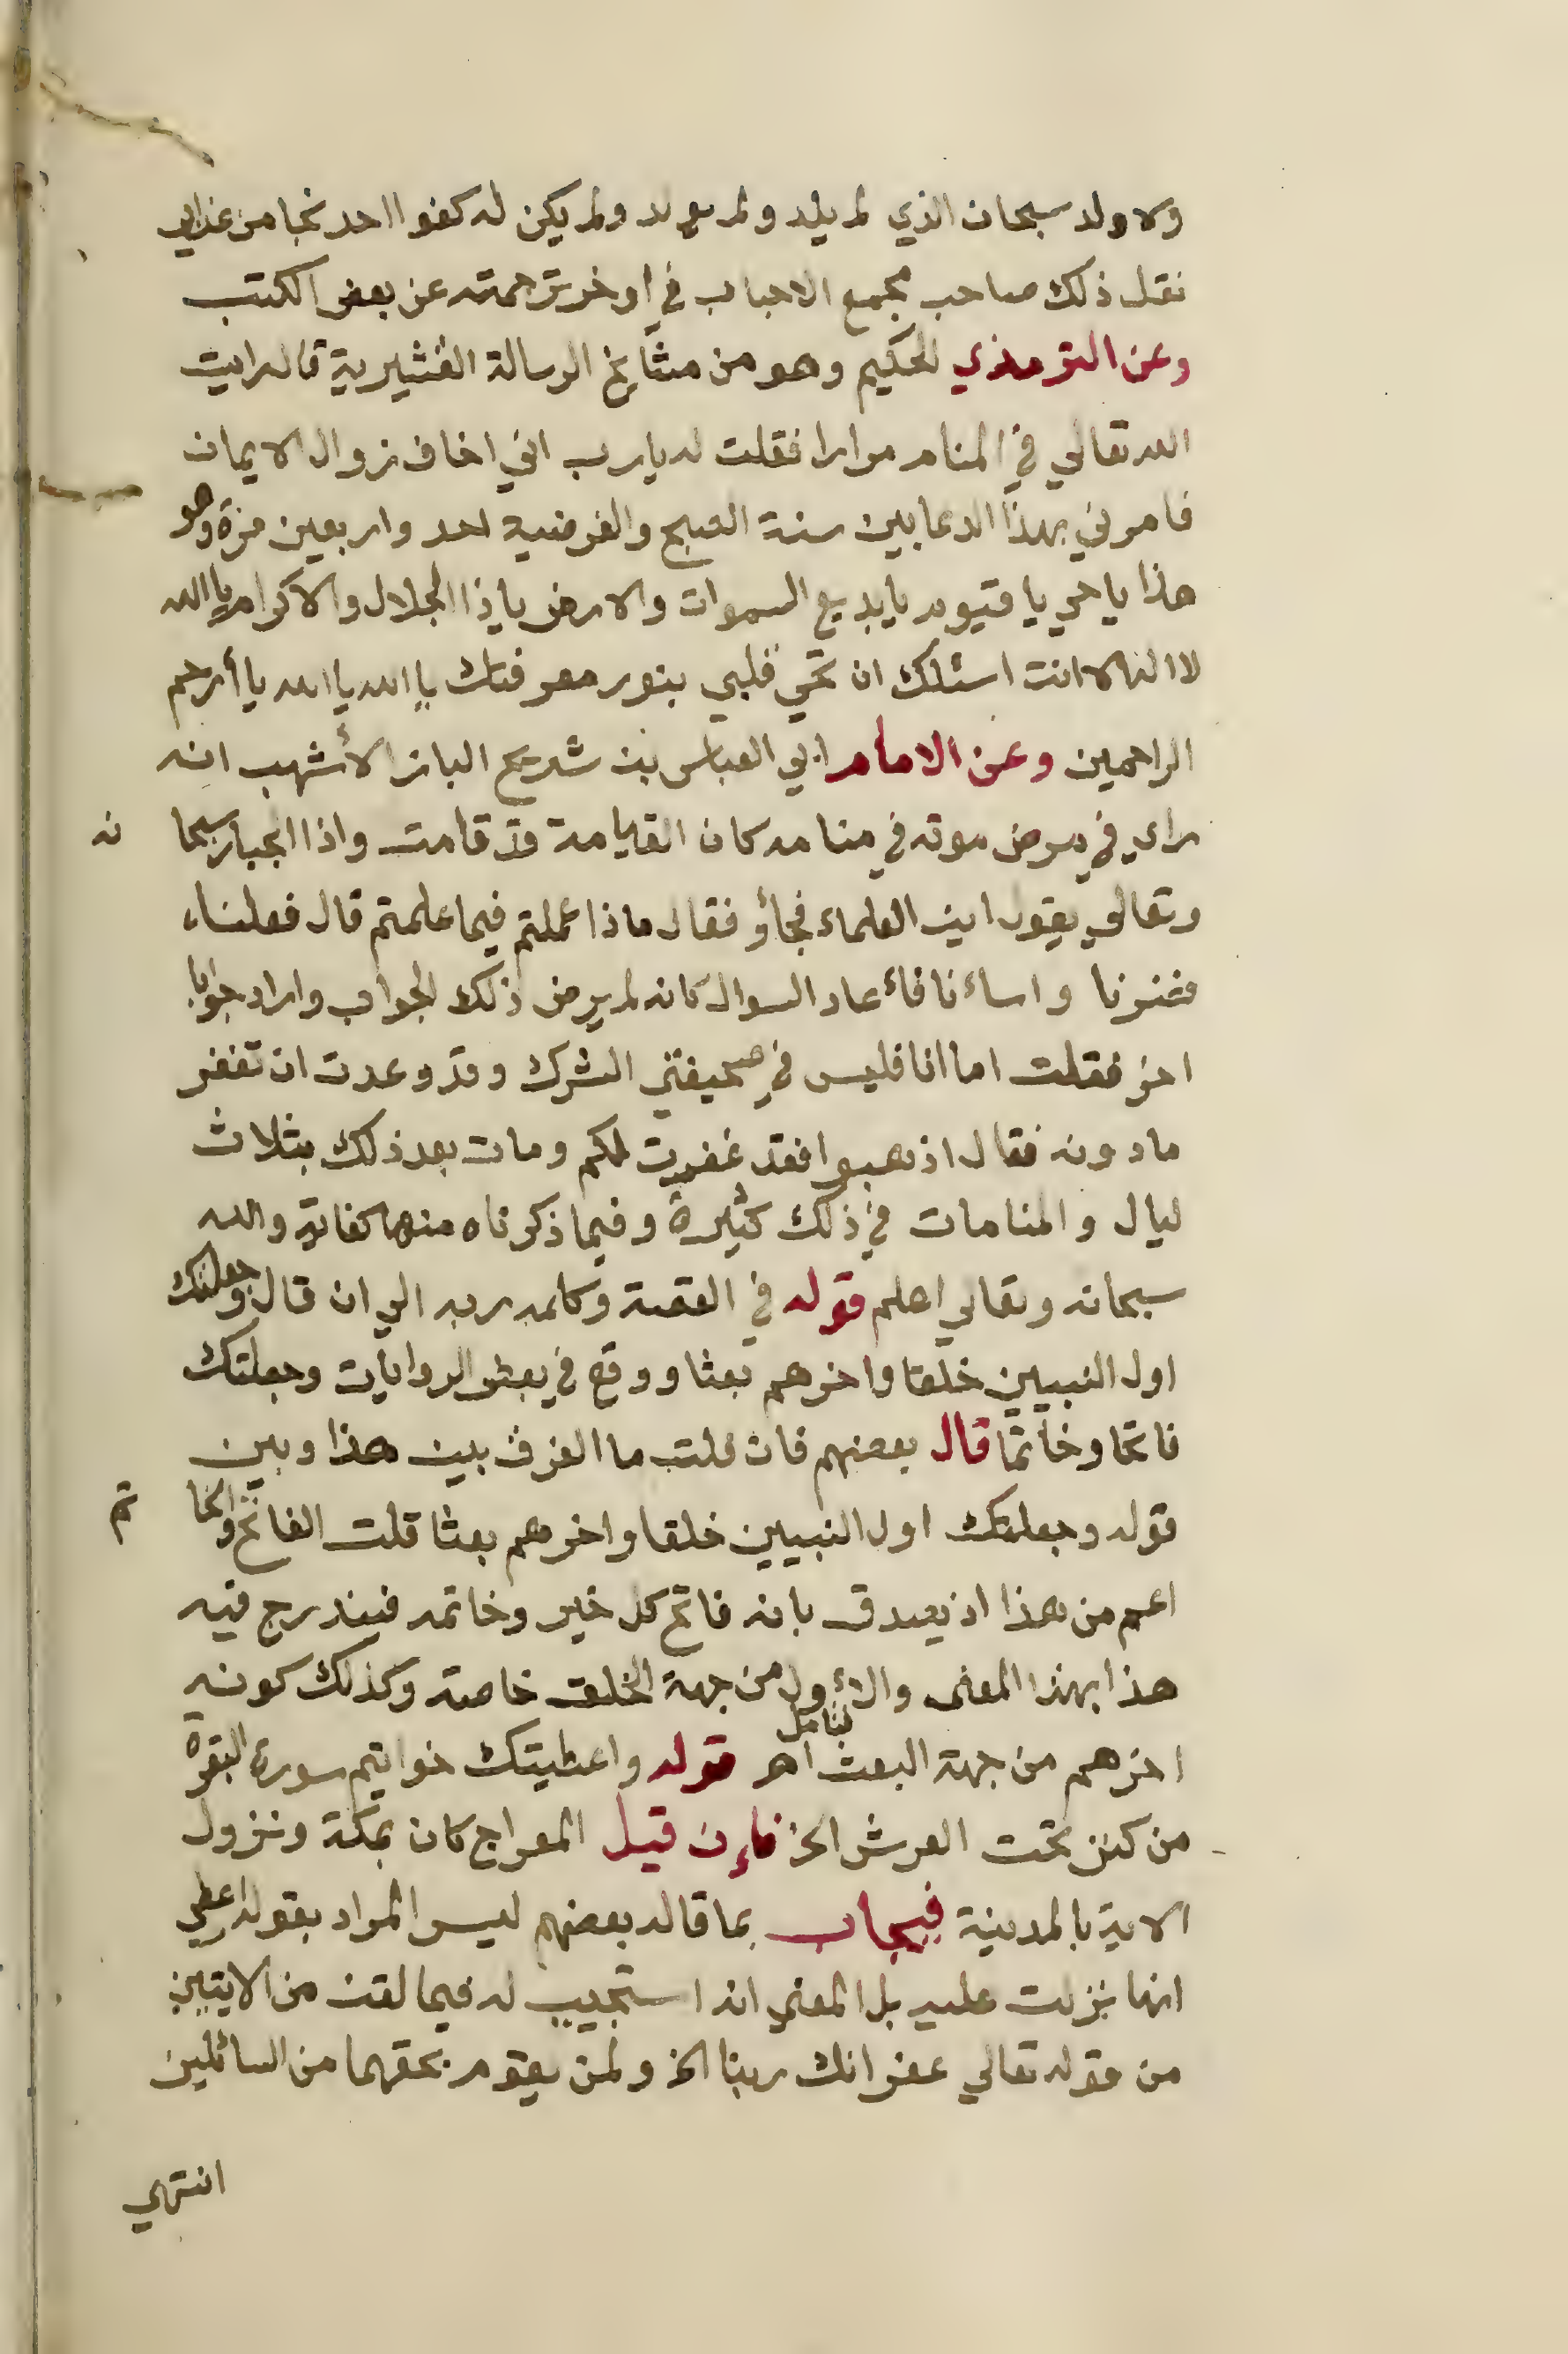 ولا ولد سبحان الذي لم يلد ولم يولد ولم يكن له كفوا احد نجا من عذابي
نقل ذلك صاحب مجمع الاحباب في اوخر ترجمته عن بعض الكتب
وعن الترمذي الحكيم وهو من مشايخ الرسالة القشيرية قال رايت
الله تعالي في المنام مرارا فقلت له يارب اني اخاف زوال الايمان
فامرني بهذا الدعا بين سنة الصبح والفرضيه احد واربعين مرة وهو
هذا يا حي يا قيوم يا بديع السموات والارض ياذا الجلال والاكرام يا الله
لا اله الا انت اسئلك ان تحي قلبي بنور معرفتك يا الله يا الله يا أرحم
الراحمين وعن الامام ابي العباس بن شريح الباز الأشهب انه
راي في مرض موته في منامه كان القيامة قد قامت واذا الجبار سبحا نه
وتعالي يقول اين العلماء فجاؤ فقال ماذا عملتم فيما علمتم قال فعلنا،
فقصرنا واساءنا فأعاد السوال كانه لم يرض ذلك الجواب واراد جوابا
اخر فقلت اما انا فليس في صحيفتي الشرك وقد وعدت ان تغفر
مادونه فقال اذهبوا فقد غفرت لكم ومات بعد ذلك بثلاث
ليال والمنامات في ذلك كثيرة وفيما ذكرناه منها كفاية والله
سبحانه وتعالي اعلم قوله في القصة وكلمه ربه الي ان قال وجعلتك
اول النبيين خلقا واخرهم بعثا ووقع في بعض الروايات وجعلتك
فاتحا وخاتما قال بعضهم فان قلت ما الفرق بين هذا وبين
قوله وجعلتك اول النبيين خلقا واخرهم بعثا قلت الفاتح والخا تم
اعم من هذا اذ يصدق بانه فاتح كل خير وخاتمه فيندرج فيه
هذا بهذا المعنى والأول من جهة الخلق خاصة وكذلك كونه
اخرهم من جهة البعث اهـ تأمل قوله واعطيتك خواتيم سورة البقرة
من كنز تحت العرش الخ فإن قيل المعراج كان بمكة ونزول
الاية بالمدينة فيجاب بما قاله بعضهم ليس المراد بقوله اعطي
انها نزلت عليه بل المعني انه استجيب له فيما لقن من الايتين
من قوله تعالي غفرانك ربنا الخ ولمن يقوم بحقهما من السائلين
انتهي